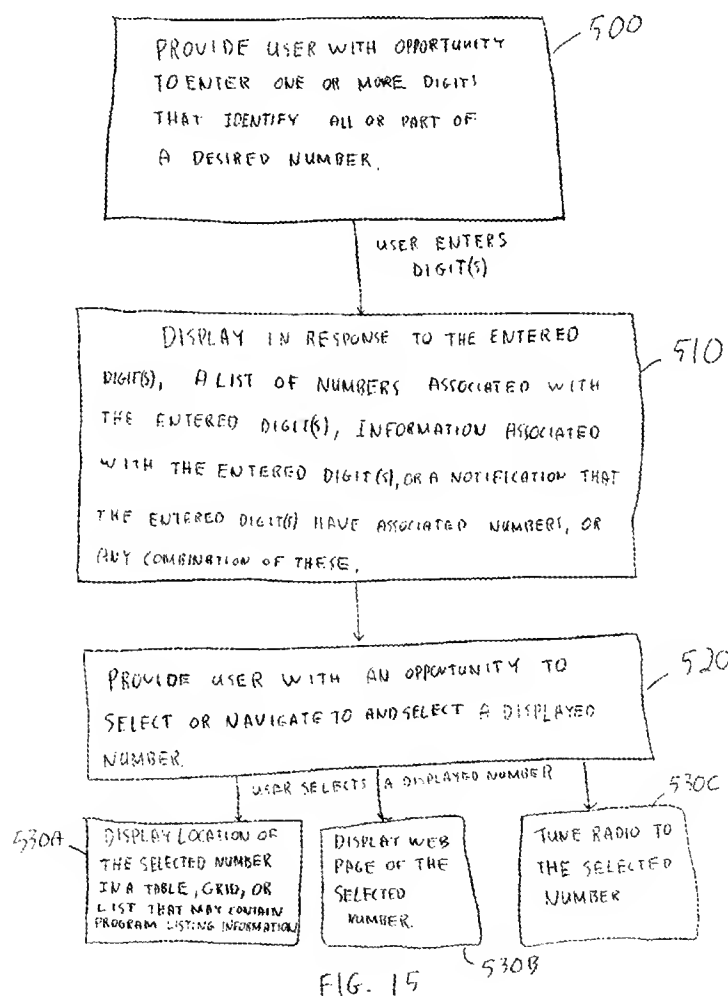 500
PROVIDE USER WITH OPPORTUNITY
TO ENTER ONE OR MORE DIGITS
THAT IDENTIFY ALL OR PART OF
A DESIRED NUMBER.
USER ENTERS
DIGIT(S)
510
DISPLAY IN RESPONSE TO THE ENTERED
DIGIT(S), A LIST OF NUMBERS ASSOCIATED WITH
THE ENTERED DIGIT(S), INFORMATION ASSOCIATED
WITH THE ENTERED DIGIT(S), OR A NOTIFICATION THAT
THE ENTERED DIGIT(S) HAVE ASSOCIATED NUMBERS, OR
ANY COMBINATION OF THESE.
520
PROVIDE USER WITH AN OPPORTUNITY TO
SELECT OR NAVIGATE TO AND SELECT A DISPLAYED
NUMBER.
USER SELECTS A DISPLAYED NUMBER
530A
DISPLAY LOCATION OF
THE SELECTED NUMBER
IN A TABLE, GRID, OR
LIST THAT MAY CONTAIN
PROGRAM LISTING INFORMATION
DISPLAY WEB
PAGE OF THE
SELECTED
NUMBER.
530B
530C
TUNE RADIO TO
THE SELECTED
NUMBER
FIG. 15